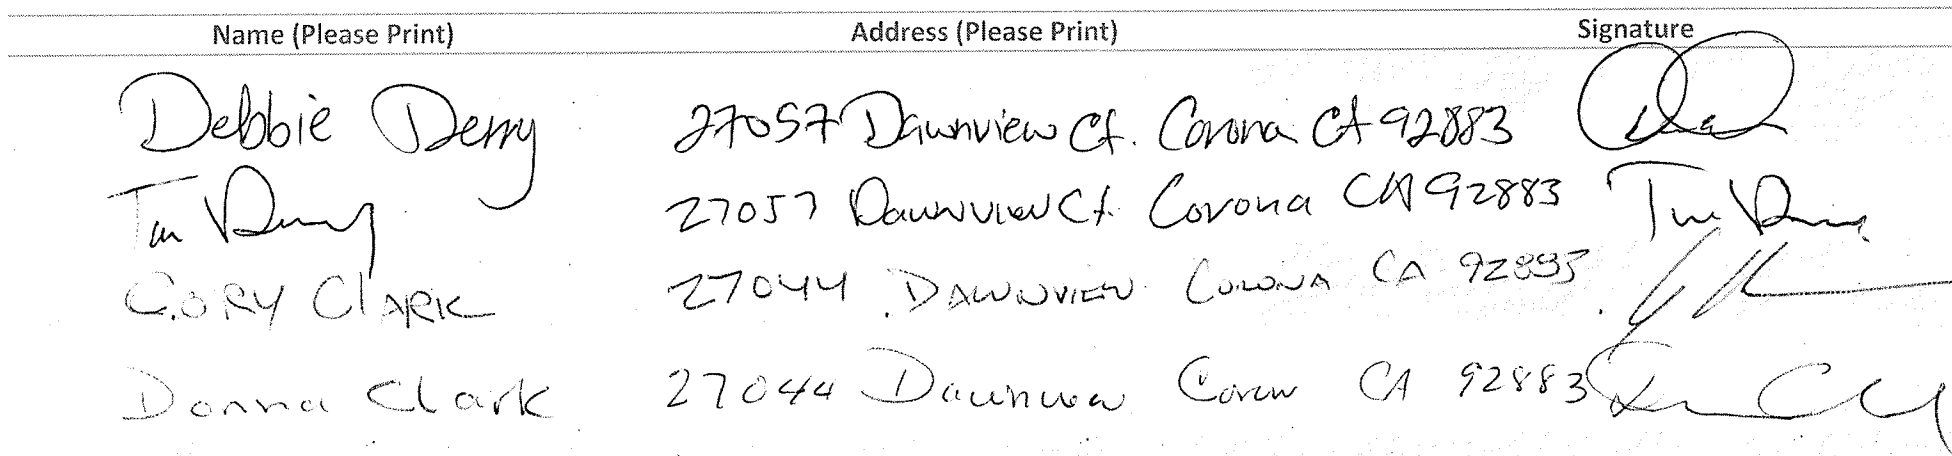 Name (Please Print) Address (Please Print) Signature
Debbie Derry 27057 Dawnview Ct. Corona CA 92883
Tim Derry 27057 Dawnview Ct. Corona CA 92883 Tim
CORY ClARK 27044 DAWNVIEW CORONA CA 92883
Donna Clark 27044 Dawnview Corona CA 92883